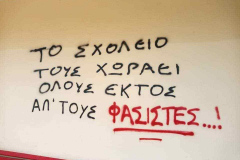 ΤΟ ΣΧΟΛΕΙΟ
ΤΟΥΣ ΧΩΡΑΕΙ
ΟΛΟΥΣ ΕΚΤΟΣ
ΑΠ'ΤΟΥΣ ΦΑΣΙΣΤΕΣ...!